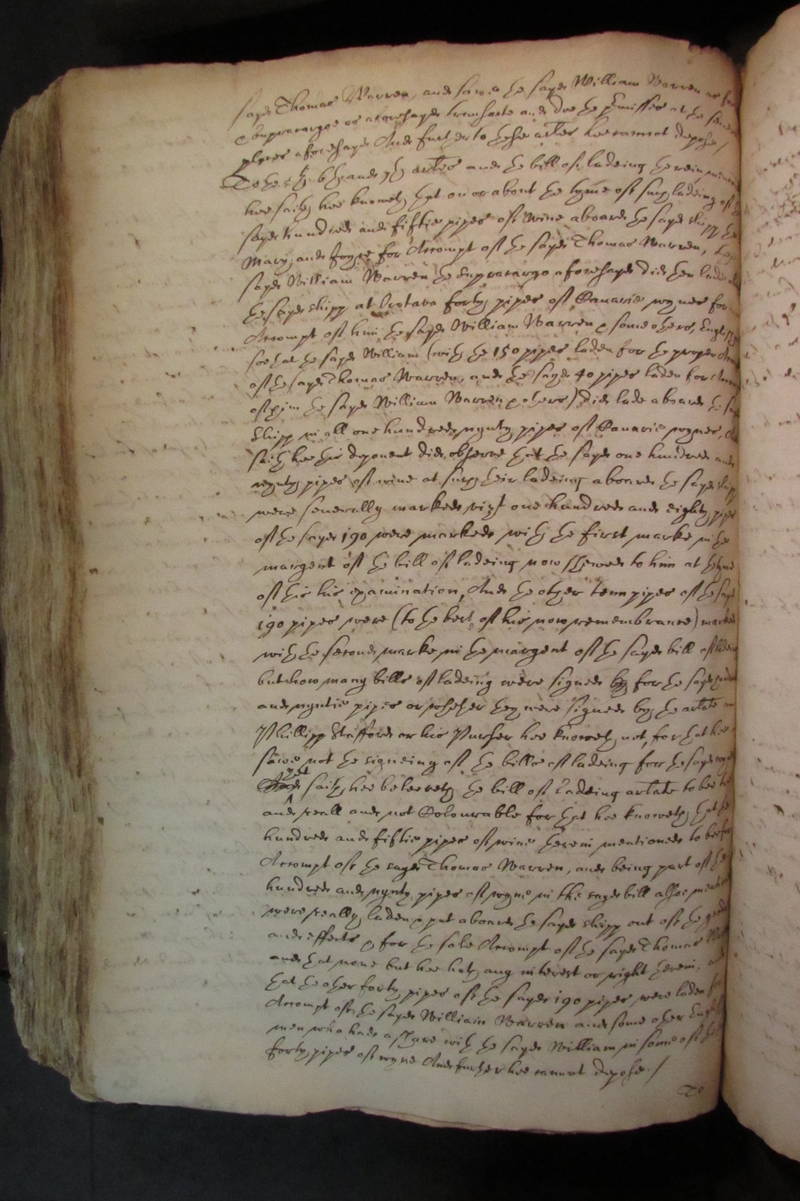 sayd Thomas Warren, and sawe the sayd William Warren
Supracargoe as aforesayd and doe the premisses at the
places aforesayd And further to theise articles hee cannot depose /
To the 5th 6th and 7th articles and the bill of ladeing therein
hee saith hee knoweth that on or about the tyme of such ladeing of
sayd hundred and fiftie pipes of wine aboard the sayd shipp the
Mary and Joyce for Accompt of the sayd Thomas Warren,
sayd William Warren the supracargo aforesayd did then lade
the sayd shipp at Orotava forty pipes of Canarie wynes for
Accompt of him the sayd William Warren & some others English
soe that the sayd William (with the 150 pipes laden for the proper
of the sayd Thomas Warren, and the sayd 40 pipes laden for
of him the sayd William Warren & others) did lade aboard the
shipp in all one hundred nynty pipes of Canarie wynes,
saith hee this deponent did observe that the sayd one hundred and
nynty pipes of wine at such their ladeing aboard the sayd shipp
were severally marked vizt one hundred and eighty pipes
of the sayd 190 were marked with the first marke in the
margent of the bill of ladeing now shewed to him at the tyme
of this his examination, And the other tenn pipes of the sayd
190 pipes were (to the best of his now remembrance) marked
with the second marke in the margent of the sayd bill of
but how many bills of ladeing were signed by for the sayd
and nyntie pipes or whether they were signed by the arlate
Phillipp Stafford or his Purser hee knoweth not, for that hee
sawe not the signeing of the bills of ladeing for the sayd
yet saith hee beleeveth the bill of ladeing arlate to bee
and reall and not Colourable for that hee knoweth that the
hundred and fiftie pipes of wine therein mentioned to bee for
Accompt of the sayd Thomas Warren, and being part of the
hundred and nynty pipes of wyne in the sayd bill also
were really laden & put aboard the sayd shipp out of the
and effects & for the sole Accompt of the sayd Thomas
and that none but hee hath any interest or right therein,
that the other forty pipes of the sayd 190 pipes were laden
Accompt of the sayd William Warren and some other
men who had a share with the sayd William in some of the
forty pipes of wyne And further hee cannot depose. /
To